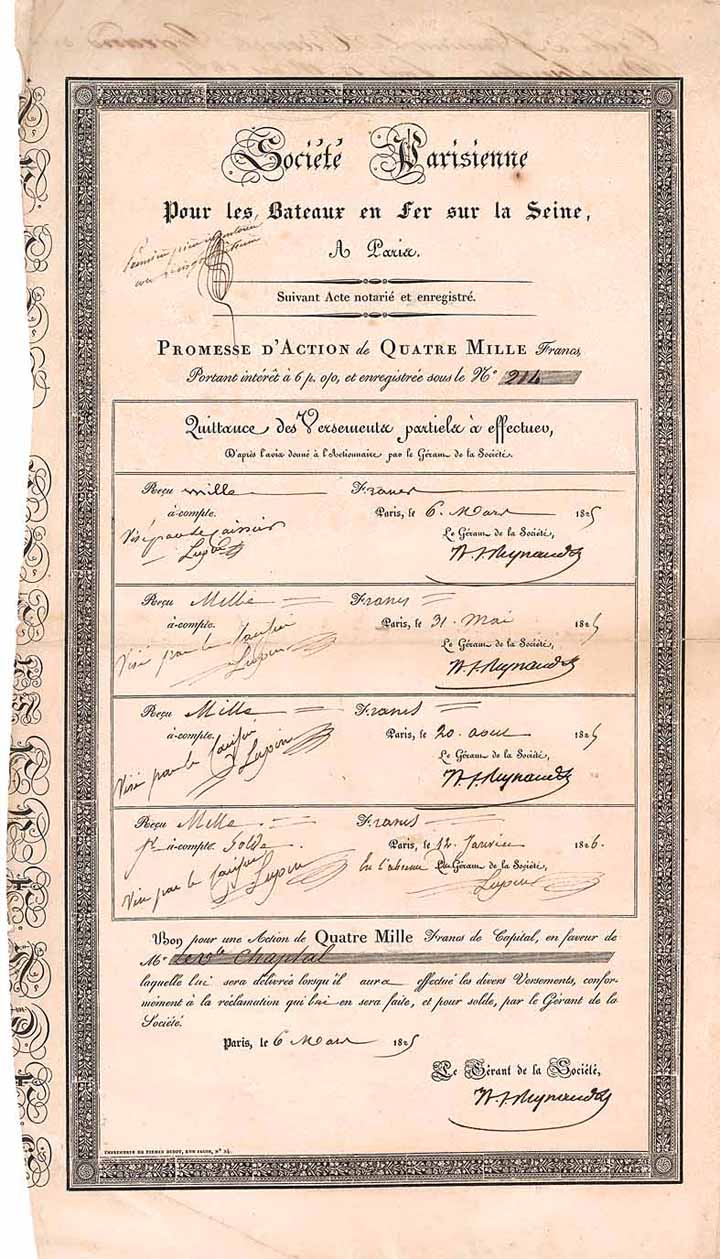 Société Parisienne
Pour les Bateaux en Fer sur la Seine,
A Paris.
Suivant Acte notarié et enregistré.
PROMESSE D'ACTION de QUATRE MILLE Francs,
Portant intérêt à 6 p. o/o, et enregistrée sous le N° 214
Quittance des Versements partiels à effectuer,
D'après l'avis donné à l'Actionnaire par le Gérant de la Société.
Reçu mille Francs
à-compte. Paris, le 6 Mars 1825
Visé par le caissier Le Gérant de la Société,
Lupin
Reçu Mille Francs
à-compte. Paris, le 31. Mai 1825
Visé par le Caissier Le Gérant de la Société,
Lupin
Reçu Mille Francs
à-compte. Paris, le 20. aout 1825
Visé par le Caissier Le Gérant de la Société,
Lupin
Reçu Mille Francs
pr à-compte. Solde. Paris, le 12. Janvier 1826.
Visé par le Caissier En l'absence du Gérant de la Société,
Lupin Lupin
Bon pour une Action de Quatre Mille Francs de Capital, en faveur de
Mr Le Vte Chaptal
laquelle lui sera délivrée lorsqu'il aura effectué les divers Versements, confor-
mément à la réclamation qui lui en sera faite, et pour solde, par le Gérant de la
Société.
Paris, le 6 Mars 1825
Le Gérant de la Société,
IMPRIMERIE DE FIRMIN DIDOT, RUE JACOB, N° 24.